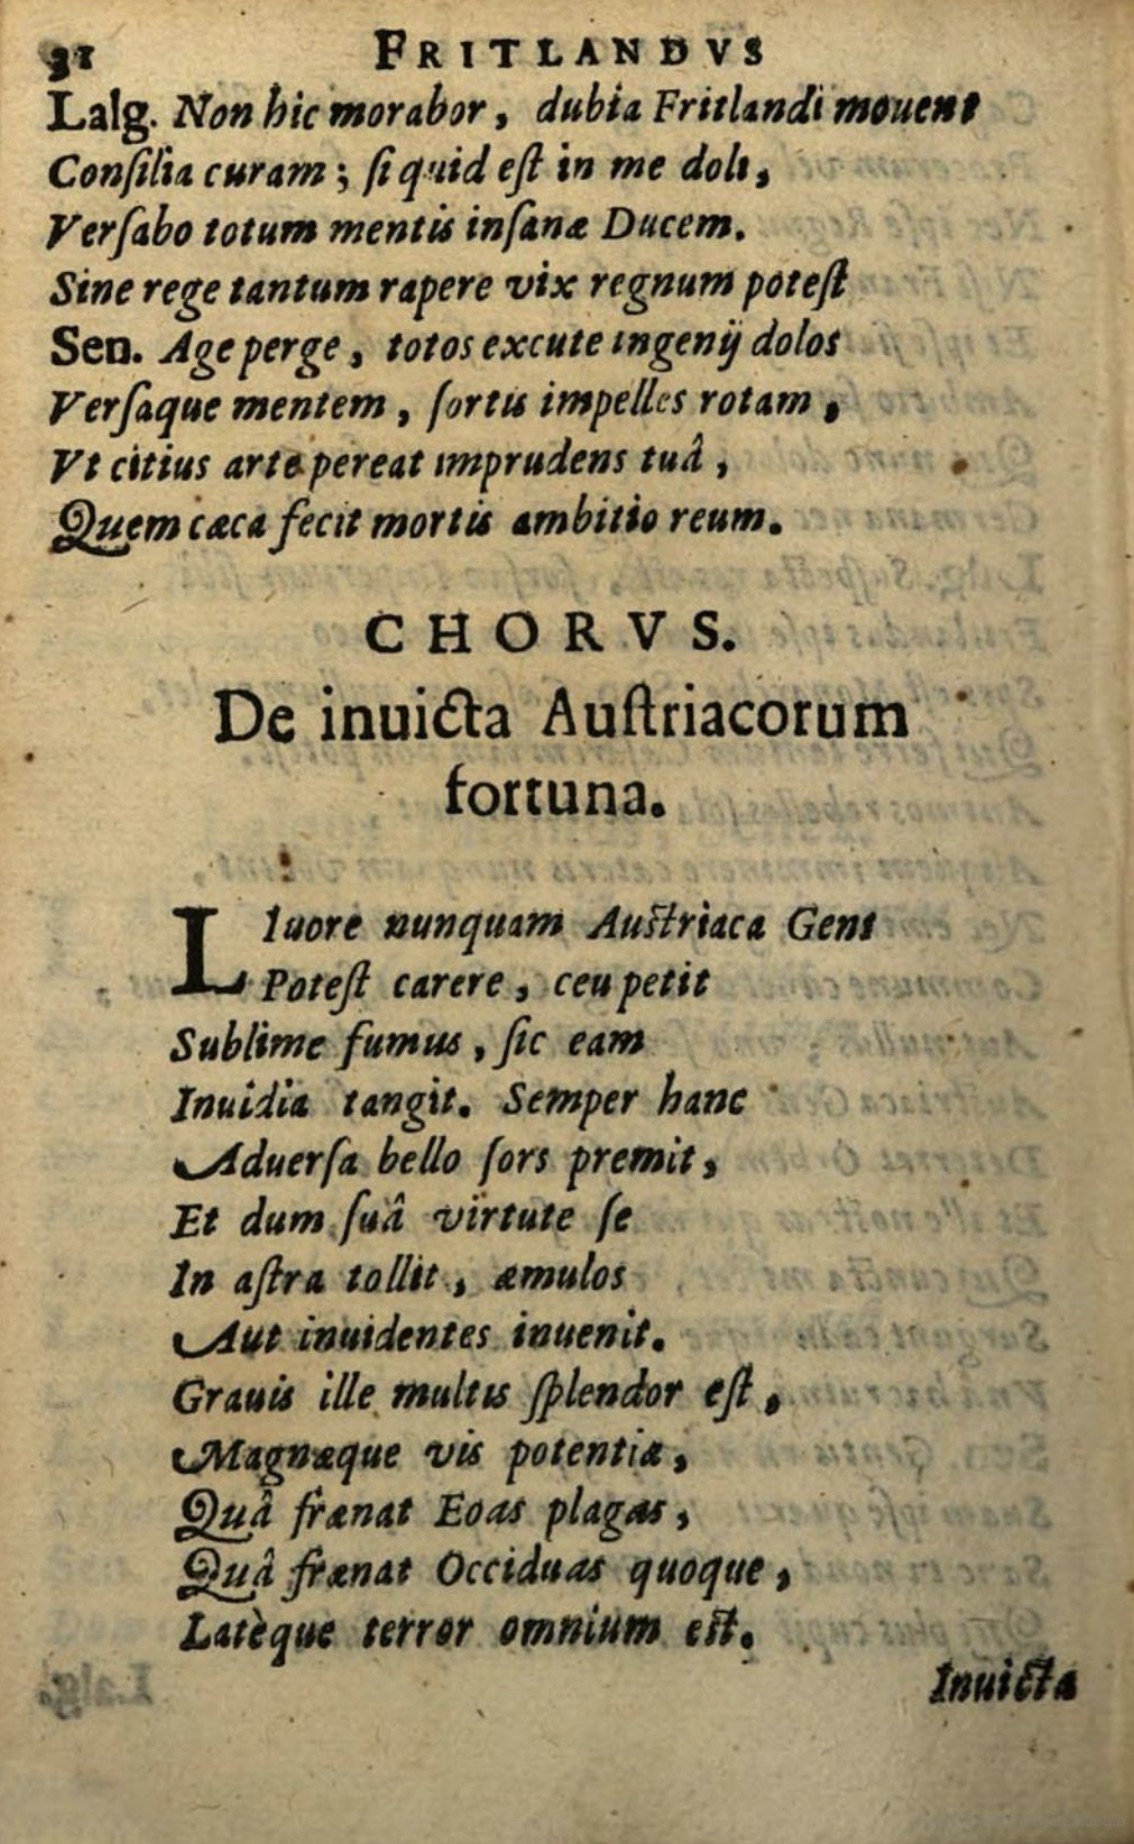 31 FRITLANDVS
Lalg. Non hic morabor, dubia Fritlandi mouent
Conſilia curam; ſi quid eſt in me doli,
Verſabo totum mentis inſanæ Ducem.
Sine rege tantum rapere vix regnum poteſt
Sen. Age perge, totos excute ingenij dolos
Verſaque mentem, ſortis impelles rotam,
Vt citius arte pereat imprudens tuâ,
Quem cæca fecit mortis ambitio reum.
CHORVS.
De inuicta Auſtriacorum
fortuna.
LIuore nunquam Auſtriaca Gens
Poteſt carere, ceu petit
Sublime fumus, ſic eam
Inuidia tangit. Semper hanc
Aduerſa bello ſors premit,
Et dum ſuâ virtute ſe
In aſtra tollit, æmulos
Aut inuidentes inuenit.
Grauis ille multis ſplendor eſt,
Magnæque vis potentiæ,
Quâ frænat Eoas plagas,
Quâ frænat Occiduas quoque,
Latèque terror omnium eſt.
Inuicta